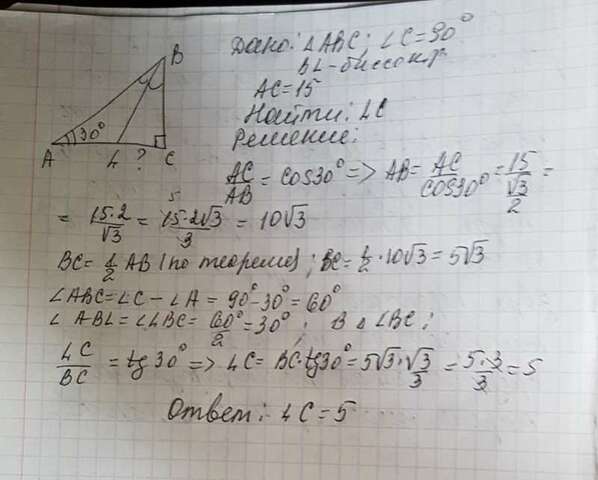 Дано: △ABC; ∠C=90°
BL-биссектр
AC=15
Найти: LC
Решение:
B
30°
A L ? C
AC/AB = cos30° => AB = AC/cos30° = 15/(√3/2) =
= 15·2/√3 = 15·2√3/3 = 10√3
5
BC = 1/2 AB (по теореме); BC = 1/2 · 10√3 = 5√3
∠ABC = ∠C - ∠A = 90° - 30° = 60°
∠ABL = ∠LBC = 60°/2 = 30°; В △LBC:
LC/BC = tg 30° => LC = BC·tg30° = 5√3·√3/3 = 5·3/3 = 5
Ответ: LC = 5